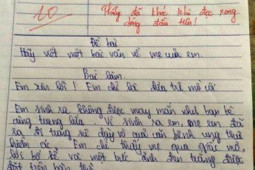 10
Thầy đã khóc khi đọc xong
dòng đầu tiên!
Đề bài
Hãy viết một bài văn về mẹ của em.
Bài làm
Em xin lỗi! Em chỉ là đứa trẻ mồ côi
Em sinh ra không được may mắn như bạn bè
cùng trang lứa. Vì sinh ra em, mẹ em đã
ra đi trong
căn bệnh ung thư
Em chỉ thấy mẹ qua giấc mơ,
bố kể và một bức ảnh đen trắng được
đặt trên bàn thờ.